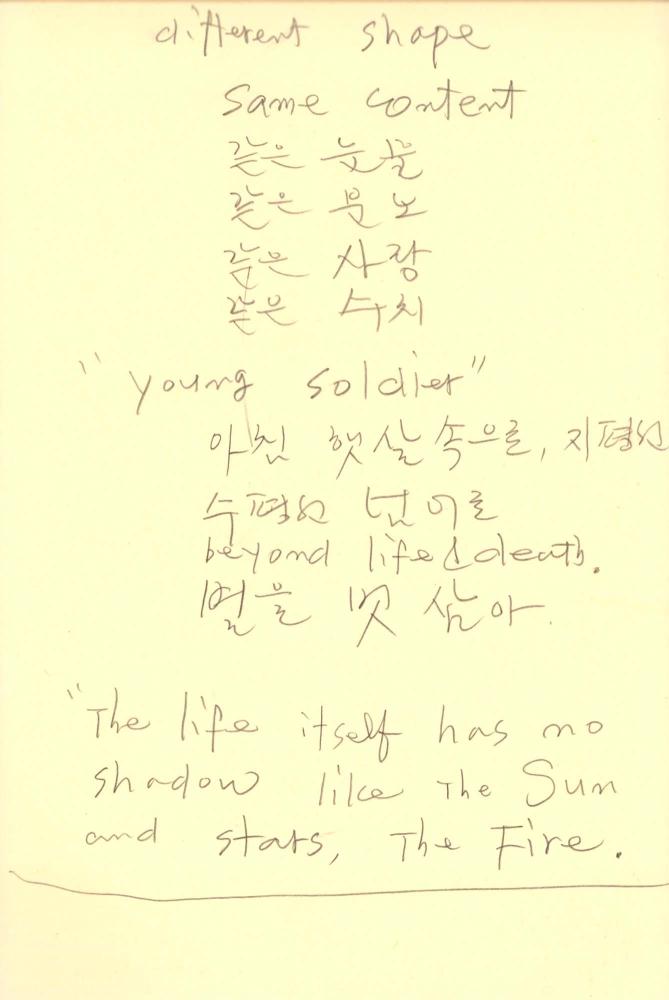 different shape
same content
같은 눈물
같은 분노
같은 사랑
같은 수치
"young soldier"
아침 햇살 속으로, 지평선
수평선 넘어로
beyond life & death.
별을 벗 삼아.
"The life itself has no
shadow like The Sun
and stars, The Fire.